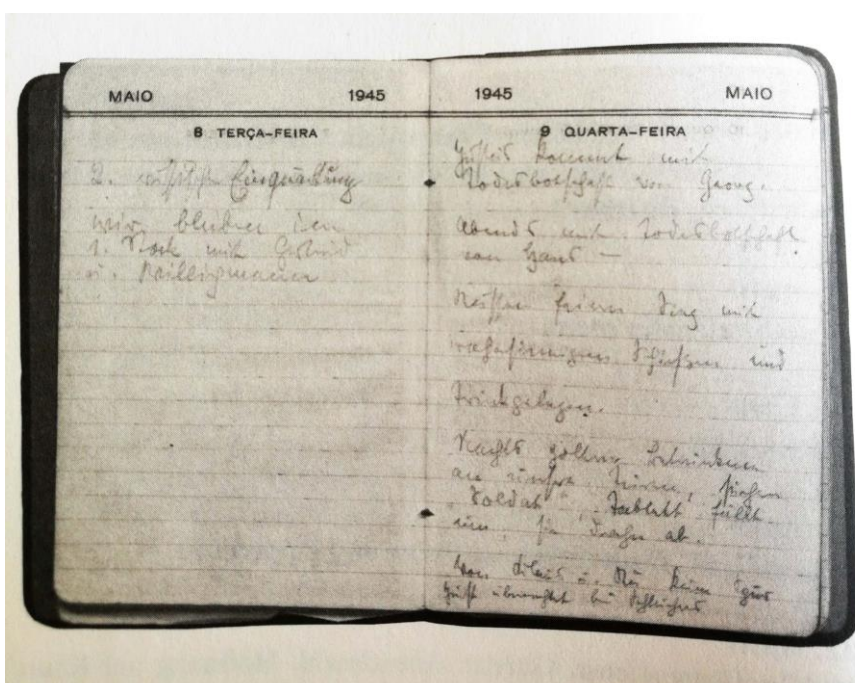 MAIO 1945
8 TERÇA-FEIRA
2. russische Einquartierung
wir bleiben im
1. Stock mit
u.
1945 MAIO
9 QUARTA-FEIRA
kommt mit
Todesbotschaft von Georg.
Abends mit Todesbotschaft
von Hans —
Russen feiern Sieg mit
wahnsinnigem Schießen und
Trinkgelagen.
Nachts Betrunkene
an unsere Türen, suchen
"Soldat", Tablett fällt
um, sie ab.
Von u. keine Spur
übernachtet bei Schleichers